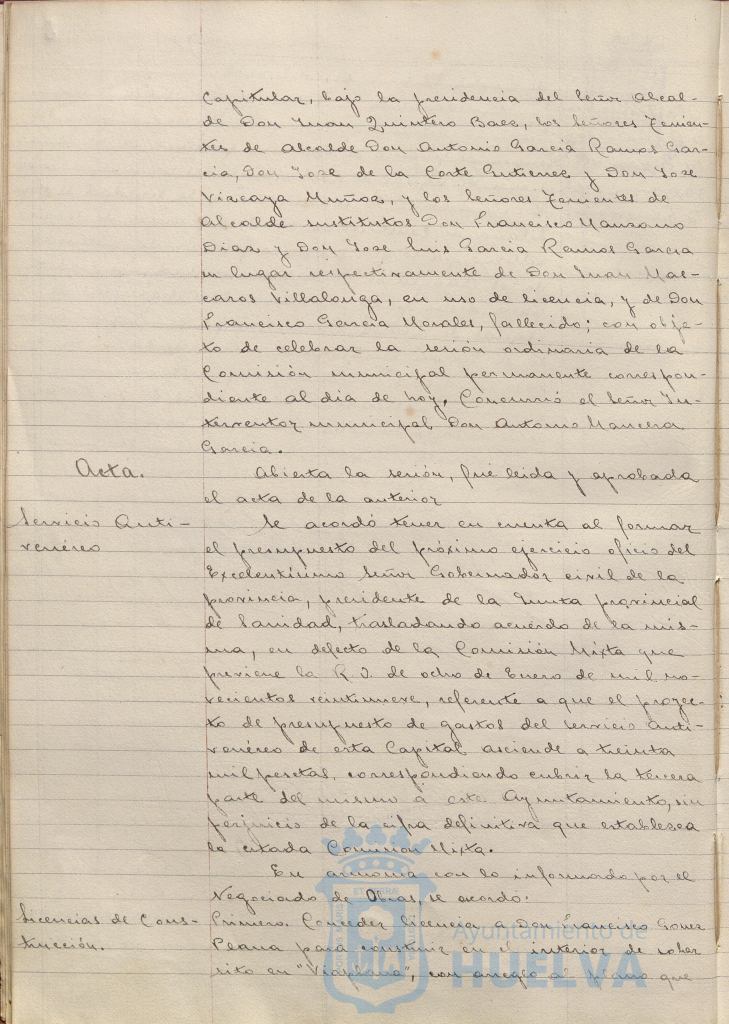 Capitular, bajo la presidencia del Señor Alcal-
de Don Juan Quintero Baez, los Señores Tenien-
tes de Alcalde Don Antonio Garcia Ramos Gar-
cia, Don Jose de la Corte Gutierrez y Don Jose
Vizcaya Muñoz, y los Señores Tenientes de
Alcalde sustitutos Don Francisco Manzano
Diaz y Don Jose Luis Garcia Ramos Garcia
en lugar respectivamente de Don Juan Mas-
caros Villalonga, en uso de licencia, y de Don
Francisco Garcia Morales, fallecido; con obje-
to de celebrar la sesión ordinaria de la
Comisión municipal permanente correspon-
diente al dia de hoy. Concurrió el Señor In-
terventor municipal Don Antonio Mancera
Garcia.
Acta.
Abierta la sesión, fué leida y aprobada
el acta de la anterior
Servicio Anti-
venéreo
Se acordó tener en cuenta al formar
el presupuesto del próximo ejercicio oficio del
Excelentísimo Señor Gobernador civil de la
provincia, presidente de la Junta provincial
de Sanidad, trasladando acuerdo de la mis-
ma, en defecto de la Comisión Mixta que
previene la R. O. de ocho de Enero de mil no-
vecientos veintinueve, referente a que el proyec-
to de presupuesto de gastos del servicio Anti-
venéreo de esta Capital asciende a treinta
mil pesetas, correspondiendo cubrir la tercera
parte del mismo á este Ayuntamiento, sin
perjuicio de la cifra definitiva que establesca
la citada Comision Mixta.
En armonia con lo informado por el
Negociado de Obras, se acordó:
Licencias de Cons-
trucción.
Primero. Conceder licencia a Don Francisco Gomez
para construir en el interior de solar
sito en "Viaplana", con arreglo al plano que
Ayuntamiento de
HUELVA